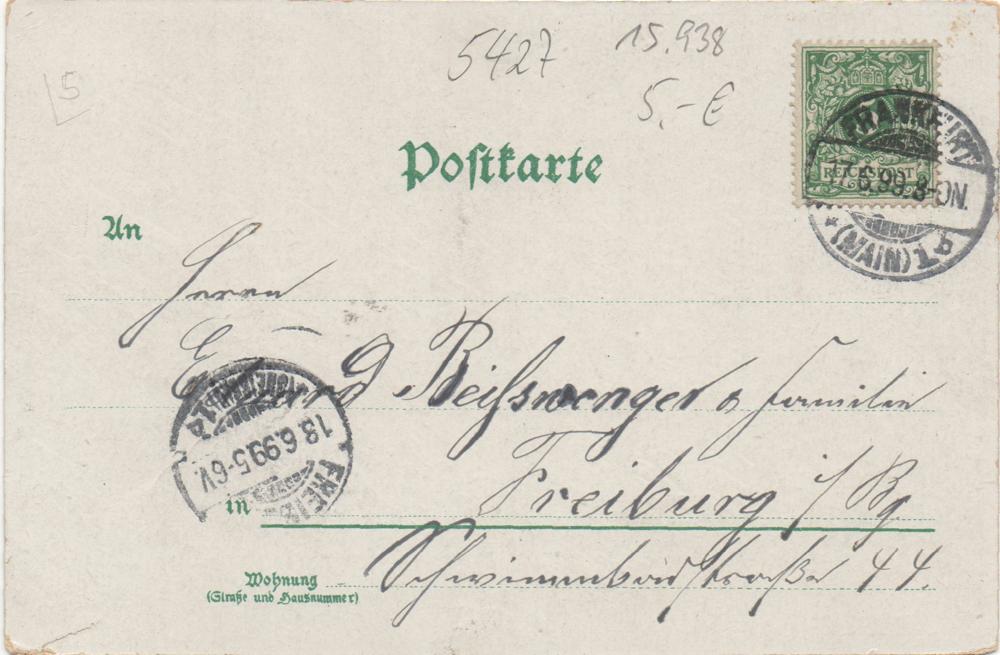 5
5427
15.938
5,-€
Postkarte
REICHSPOST
FRANKFURT
17.6.99.8-9N.
* (MAIN) 1 b
An
Herrn
Beißwenger & Familie
18.6.99.5-6V.
in Freiburg i/Bg
Wohnung
(Straße und Hausnummer)
Schwimmbadstraße 44.